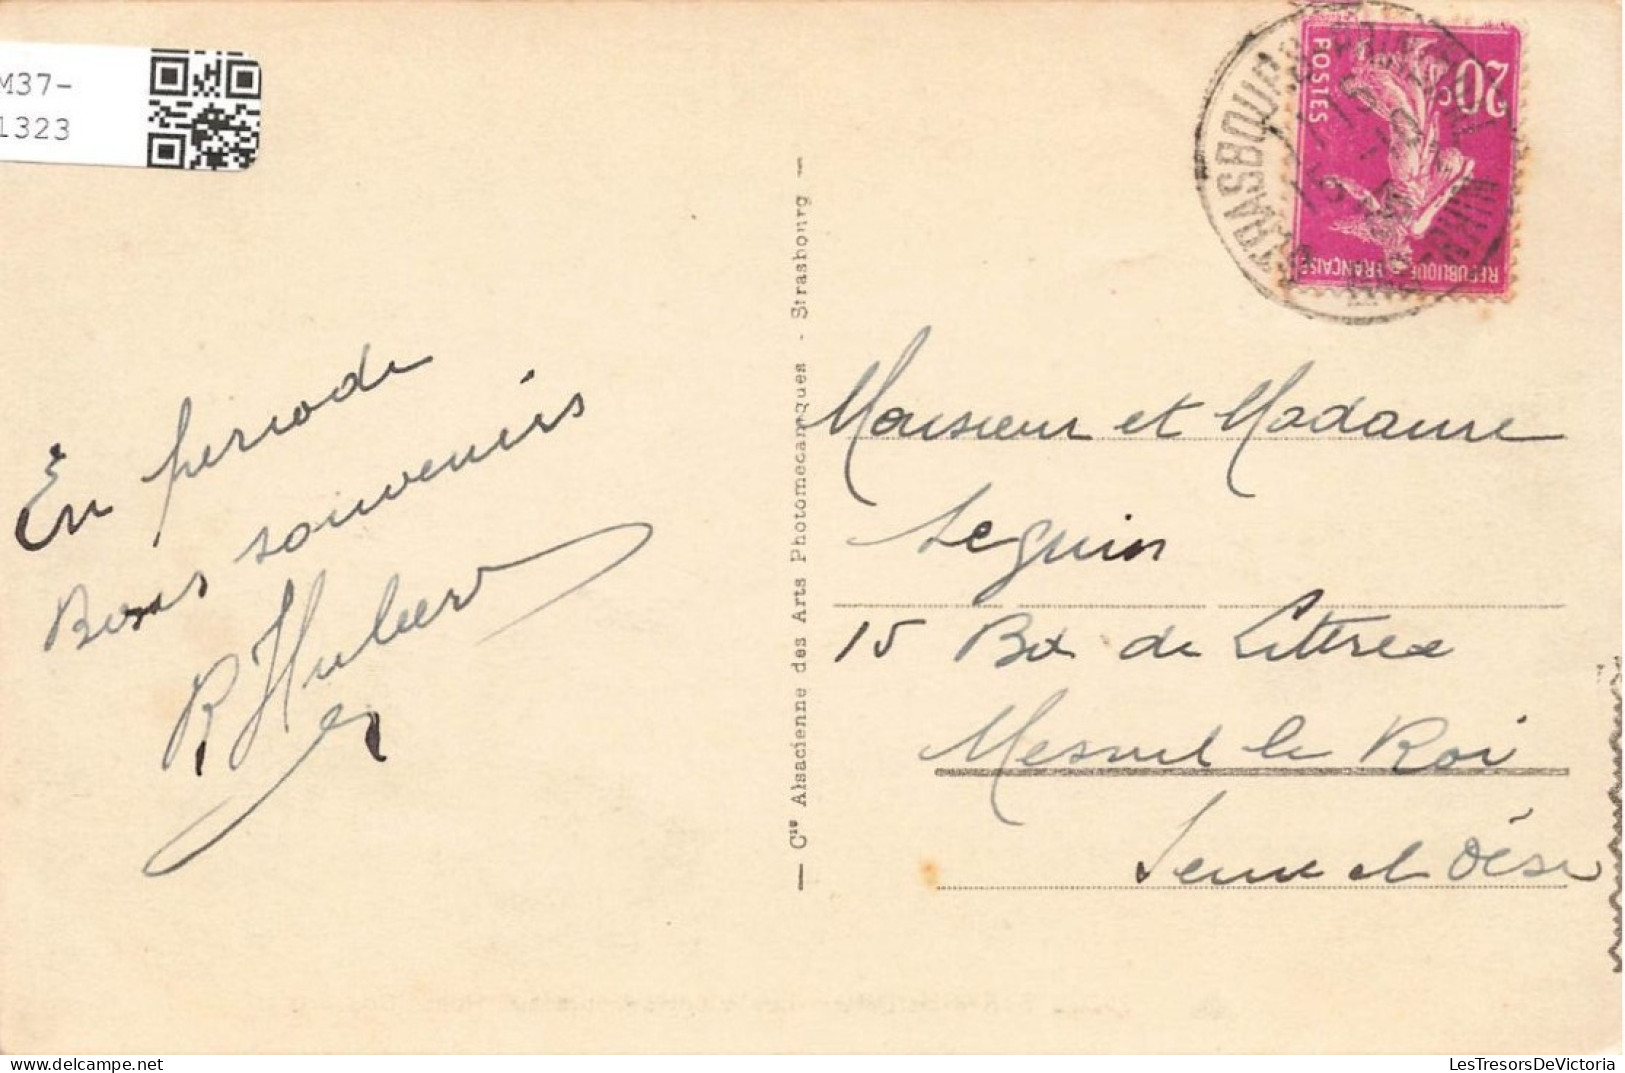 M37-
1323
En periode
Bons souvenirs
R Hubert
— Cie Alsacienne des Arts Photomécaniques - Strasbourg —
STRASBOURG
20c
POSTES
REPUBLIQUE FRANÇAISE
Monsieur et Madame
Seguin
15 Bd de Littrée
Mesnil le Roi
Seine et Oise
LesTresorsDeVictoria